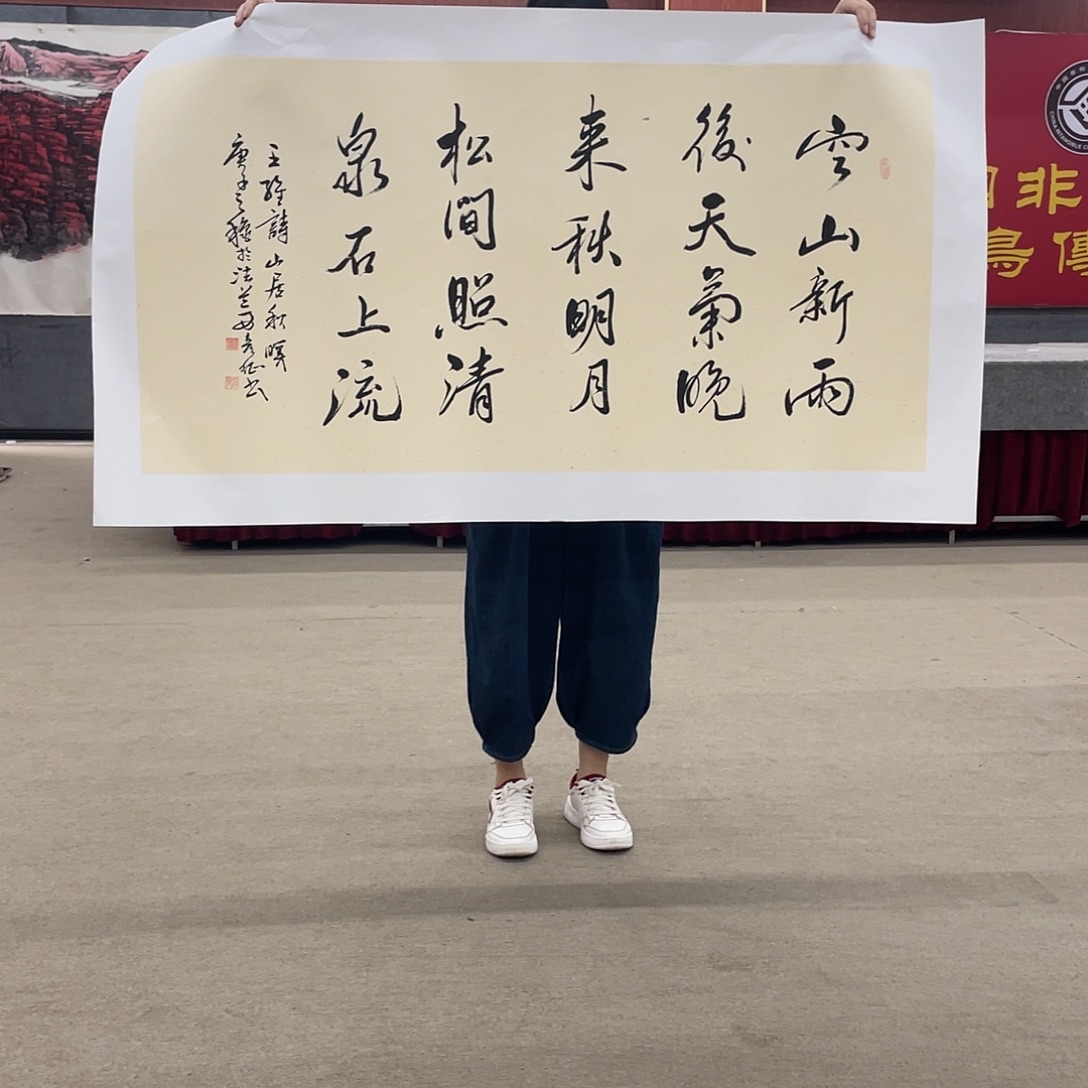 空山新雨
後天氣晚
来秋明月
松間照清
泉石上流
王維詩山居秋暝
庚子之 於法兰 书
非
鳥